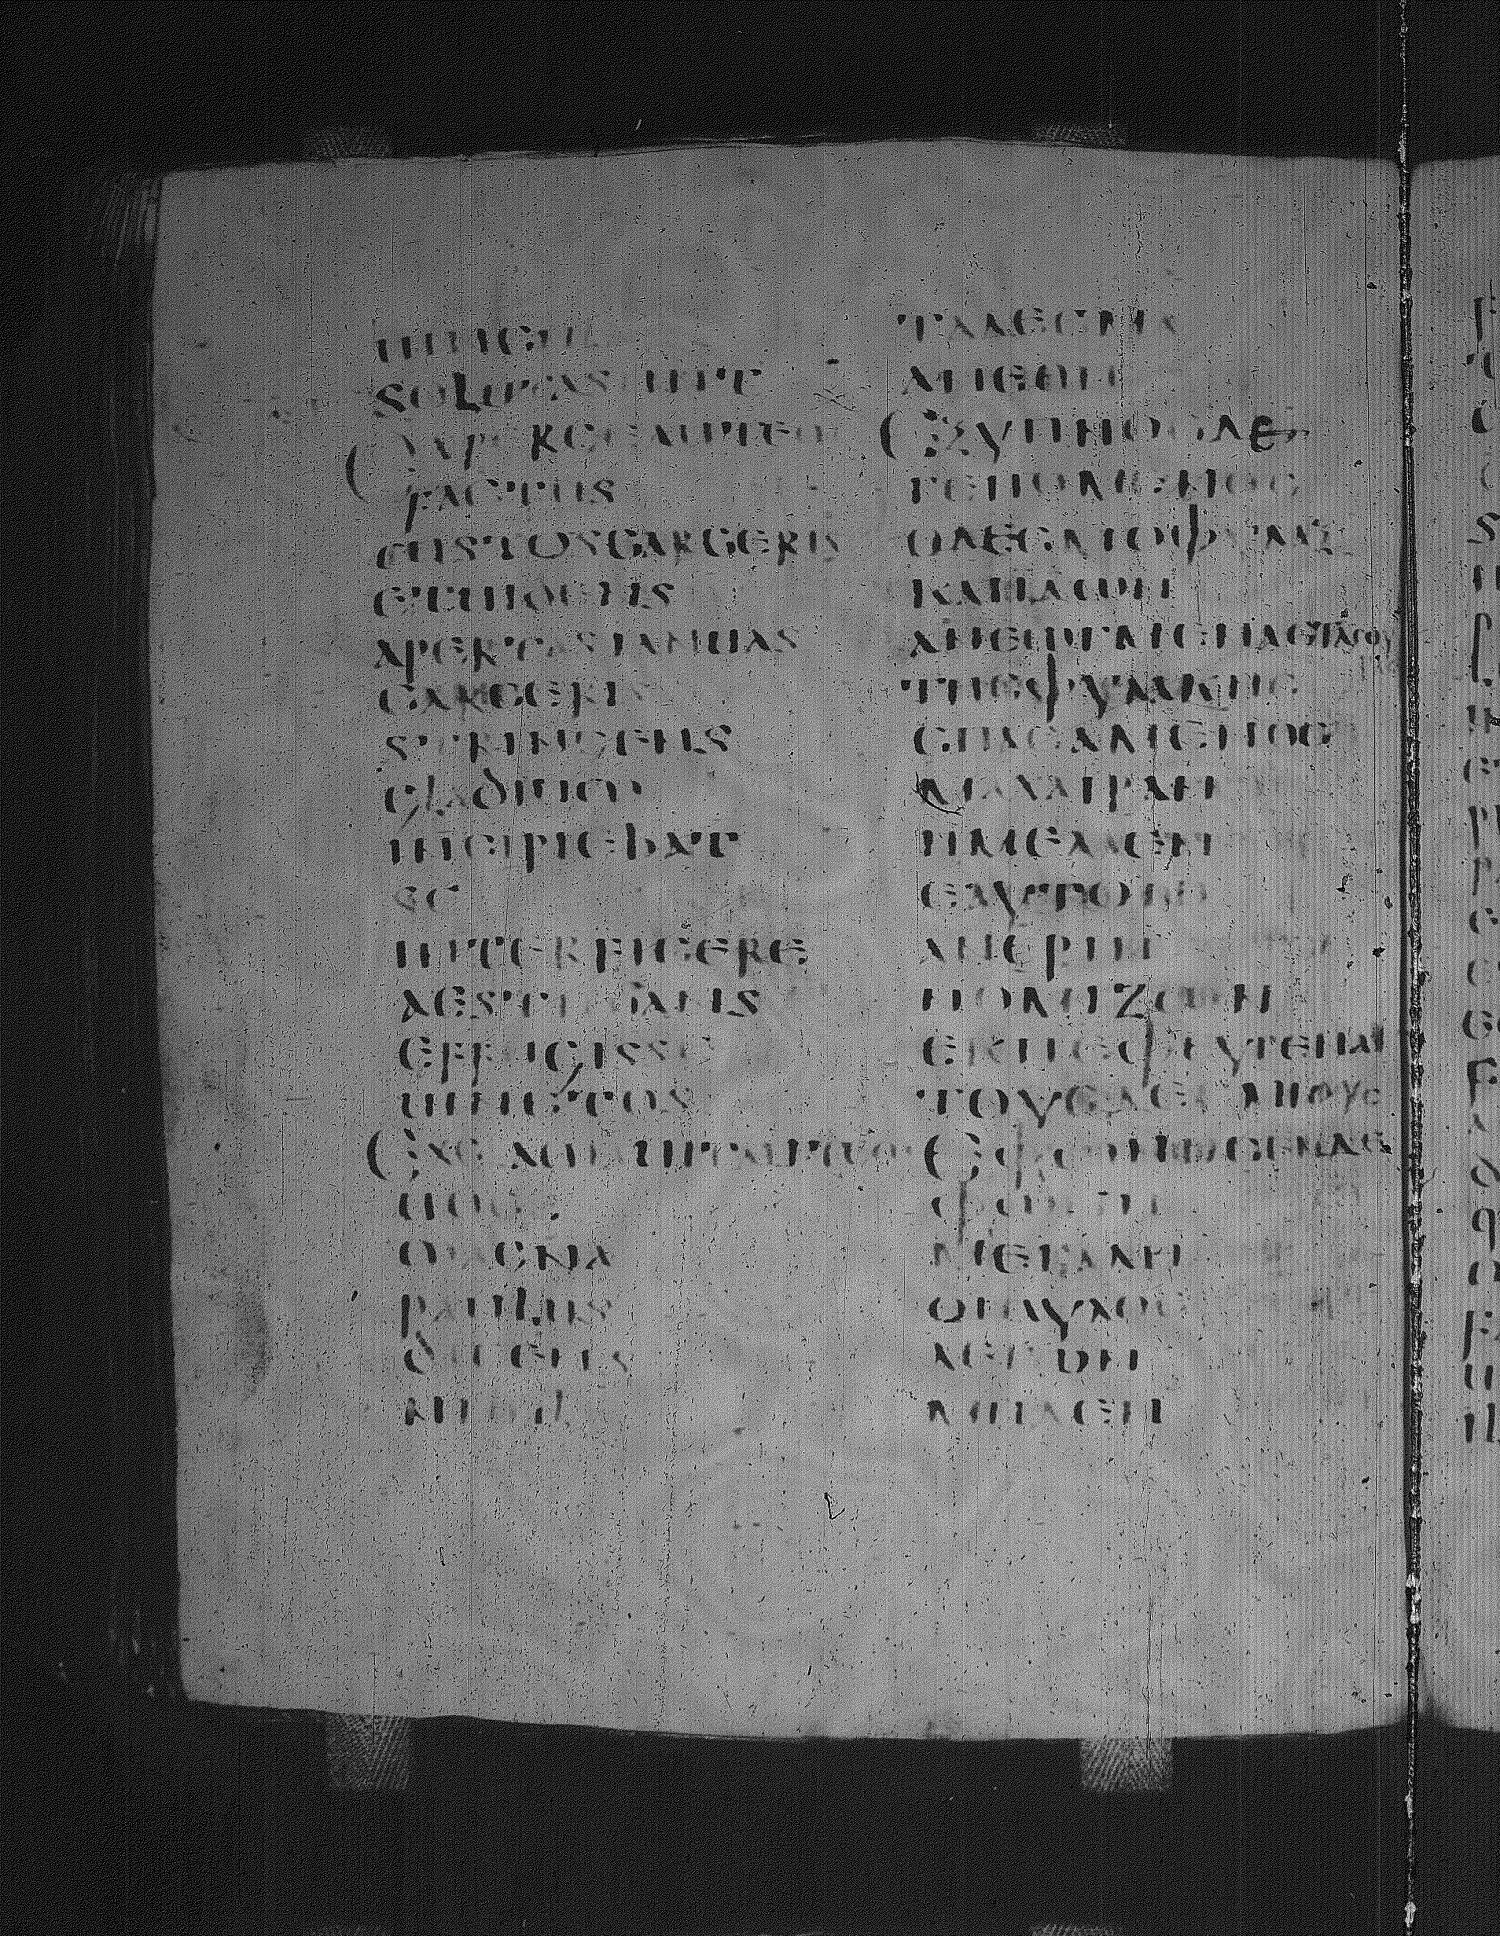 UINCUL
SOLUTAS UNT
EXPERGEAUTEM
FACTUS
CUSTOSCARCERIS
ETUIDENS
APERTASIANUAS
CARCERIS
STRINGENS
GLADIUM
INCIPIEBAT
SE
INTERFICERE
AESTIMANS
EFFUGISSE
UINCTOS
EXCLAMAUITAUTEM
UOCE
MAGNA
PAULUS
DICENS
NIHIL
ΤΑΔΕϹΜΑ
ΑΝΕΘΗ
ΕΞΥΠΝΟϹΔΕ
ΓΕΝΟΜΕΝΟϹ
ΟΔΕϹΜΟΦΥΛΑΞ
ΚΑΙΙΔΩΝ
ΑΝΕΩΓΜΕΝΑϹΤΑϹΘΥ
ΤΗϹΦΥΛΑΚΗϹ
ϹΠΑϹΑΜΕΝΟϹ
ΜΑΧΑΙΡΑΝ
ΗΜΕΛΛΕΝ
ΕΑΥΤΟΝ
ΑΝΕΡΙΝ
ΝΟΜΙΖΩΝ
ΕΚΠΕΦΕΥΓΕΝΑΙ
ΤΟΥϹΔΕϹΜΙΟΥϹ
ΕΦΩΝΗϹΕΝΔΕ
ΦΩΝΗ
ΜΕΓΑΛΗ
ΟΠΑΥΛΟϹ
ΛΕΓΩΝ
ΜΗΔΕΝ